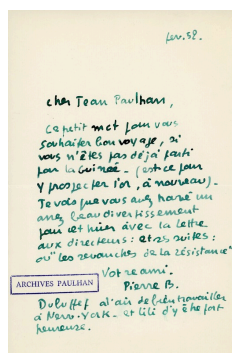 fev. 52.
cher Jean Paulhan,
ce petit mot pour vous
souhaiter bon voyage, si
vous n'êtes pas déjà parti
pour la Guinée. (est ce pour
y prospecter l'or, à nouveau).
Je vois que vous avez trouvé un
assez beau divertissement
pour cet hiver avec la lettre
aux directeurs: et ses suites:
ou "les revanches de la résistance"
Votre ami.
Pierre B.
ARCHIVES PAULHAN
Dubuffet a l'air de bien travailler
à New-York - et Lili d'y être fort
heureuse.